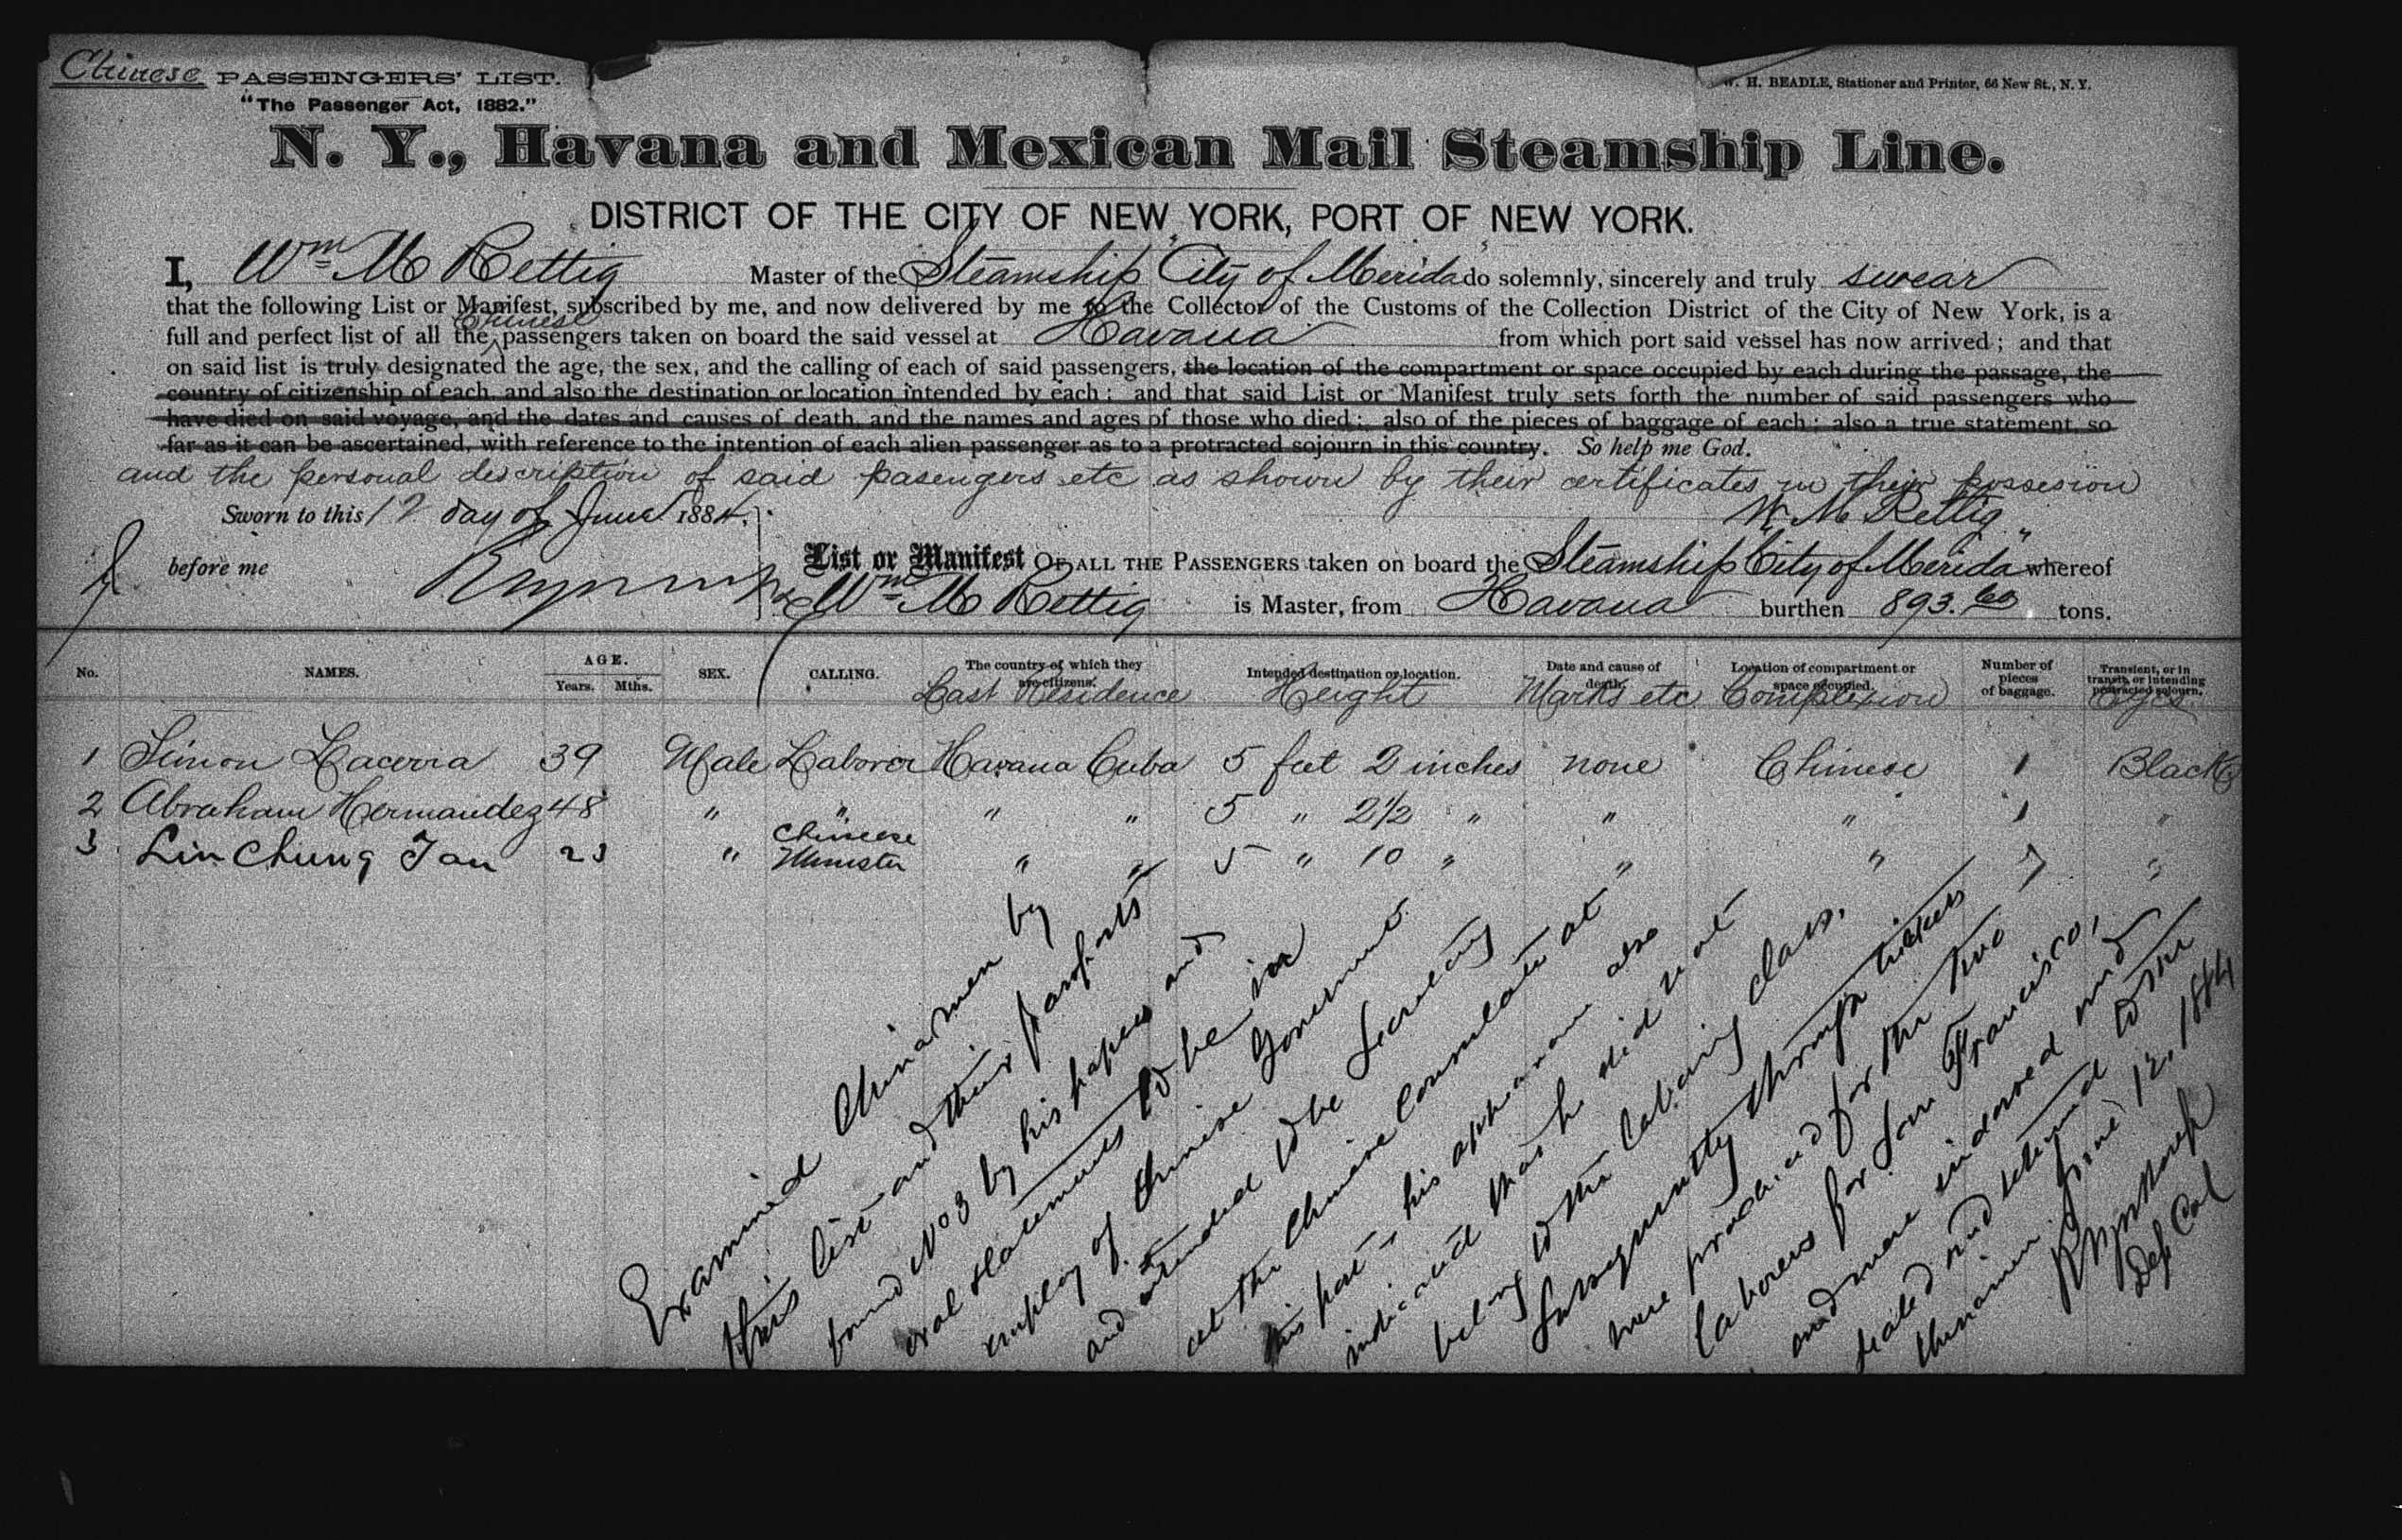 Chinese PASSENGERS' LIST.
"The Passenger Act, 1882."
W. H. BEADLE, Stationer and Printer, 66 New St., N. Y.
N. Y., Havana and Mexican Mail Steamship Line.
DISTRICT OF THE CITY OF NEW YORK, PORT OF NEW YORK.
I, Wm M Rettig Master of the Steamship "City of Merida" do solemnly, sincerely and truly swear
that the following List or Manifest, subscribed by me, and now delivered by me to the Collector of the Customs of the Collection District of the City of New York, is a
full and perfect list of all the Chinese passengers taken on board the said vessel at Havana from which port said vessel has now arrived; and that
on said list is truly designated the age, the sex, and the calling of each of said passengers, the location of the compartment or space occupied by each during the passage, the
country of citizenship of each, and also the destination or location intended by each; and that said List or Manifest truly sets forth the number of said passengers who
have died on said voyage, and the dates and causes of death, and the names and ages of those who died; also of the pieces of baggage of each; also a true statement, so
far as it can be ascertained, with reference to the intention of each alien passenger as to a protracted sojourn in this country. So help me God.
and the personal description of said pasengers etc as shown by their certificates in their possesion
Sworn to this 12 day of June 1884.
W. M Rettig
before me
List or Manifest OF ALL THE PASSENGERS taken on board the Steamship "City of Merida" whereof
Wm M Rettig is Master, from Havana burthen 893.60 tons.
No. NAMES. AGE. Years. Mths. SEX. CALLING. The country of which they are citizens. Last Residence Intended destination or location. Height Date and cause of death. Marks etc Location of compartment or space occupied. Complexion Number of pieces of baggage. Transient, or in transit, or intending protracted sojourn. Eyes
1 Simon Lacerra 39 Male Laborer Havana Cuba 5 feet 2 inches none Chinese 1 Black
2 Abraham Hernandez 48 " " " " 5 " 2 1/2 " " " 1 "
3 Lin Chung Tan 23 " Chinese Minister " " 5 " 10 " " " 7 "
Examined Chinamen by
this list and their passports
found No 3 by his papers and
oral statements to be in
employ of Chinese Government
and intended to be Secretary
at the Chinese Consulate at
this port - his appearance also
indicated that he did not
belong to the laboring class.
Subsequently through tickets
were produced for the two
laborers for San Francisco,
and were indorsed and
sealed and returned to the
Chinamen. June 12, 1884
Dep Col